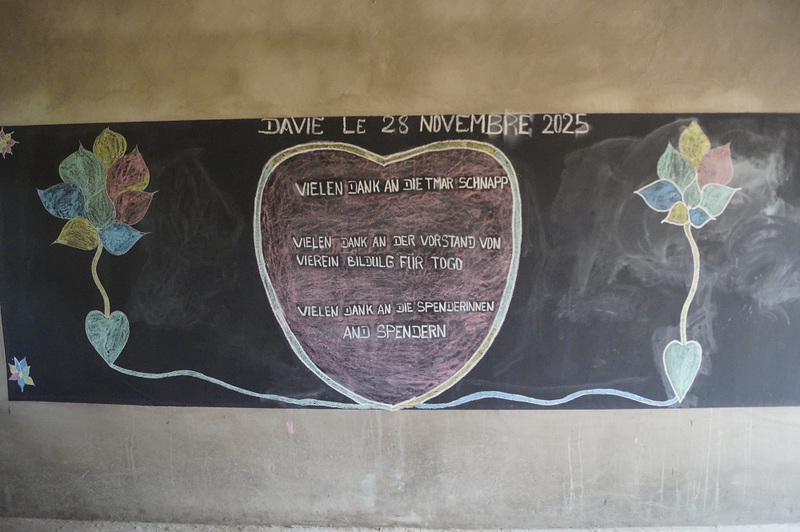 DAVIE LE 28 NOVEMBRE 2025
VIELEN DANK AN DIETMAR SCHNAPP
VIELEN DANK AN DER VORSTAND VON
VIEREIN BILDULG FÜR TOGO
VIELEN DANK AN DIE SPENDERINNEN
AND SPENDERN